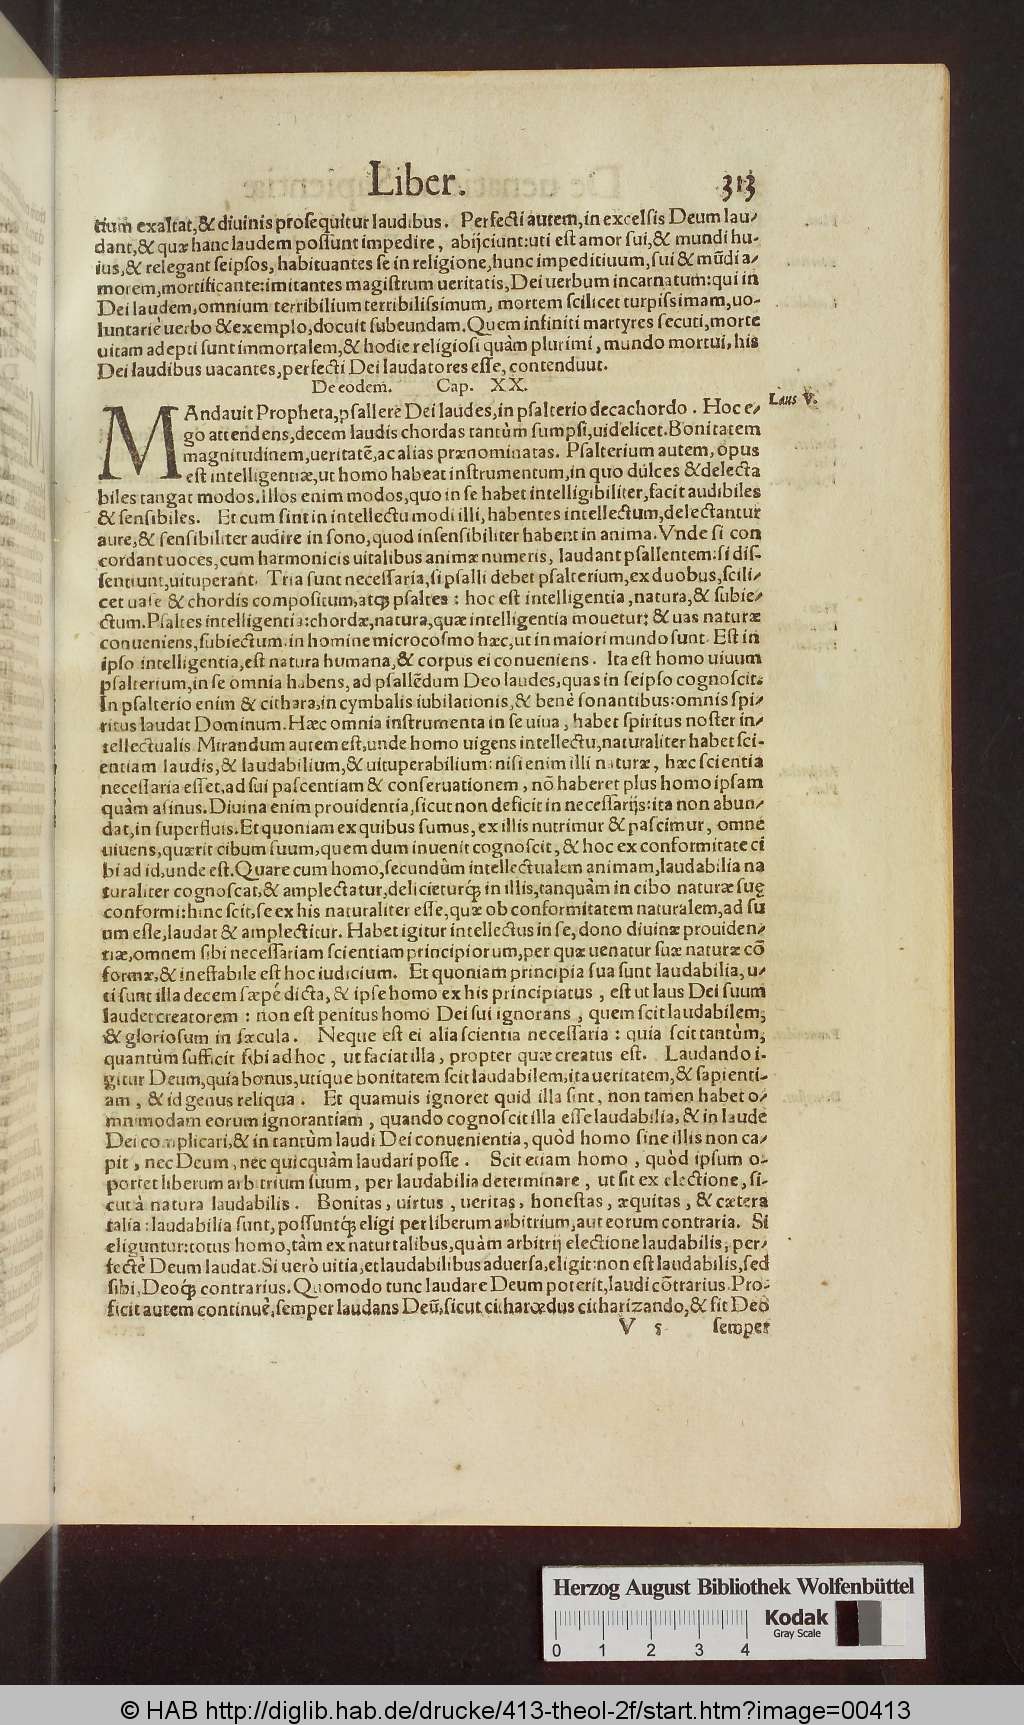 Liber. 313
tium exaltat,& diuinis prosequitur laudibus. Perfecti autem, in excelsis Deum lau-
dant,& quæ hanc laudem possunt impedire, abijciunt: uti est amor sui,& mundi hu-
ius,& relegant seipsos, habituantes se in religione, hunc impeditiuum, sui & mūdi a-
morem, mortificante: imitantes magistrum ueritatis, Dei uerbum incarnatum: qui in
Dei laudem, omnium terribilium terribilissimum, mortem scilicet turpissimam, uo-
luntariè uerbo & exemplo, docuit subeundam. Quem infiniti martyres secuti, morte
uitam adepti sunt immortalem,& hodie religiosi quàm plurimi, mundo mortui, his
Dei laudibus uacantes, perfecti Dei laudatores esse, contenduut.
De eodem. Cap. XX.
MAndauit Propheta, psallere Dei laudes, in psalterio decachordo. Hoc e- Laus V.
go attendens, decem laudis chordas tantùm sumpsi, uidelicet. Bonitatem
magnitudinem, ueritatē, ac alias prænominatas. Psalterium autem, opus
est intelligentiæ, ut homo habeat instrumentum, in quo dulces & delecta
biles tangat modos. illos enim modos, quo in se habet intelligibiliter, facit audibiles
& sensibiles. Et cum sint in intellectu modi illi, habentes intellectum, delectantur
aure,& sensibiliter audire in sono, quod insensibiliter habent in anima. Vnde si con
cordant uoces, cum harmonicis uitalibus animæ numeris, laudant psallentem: si dis-
sentiunt, uituperant. Tria sunt necessaria, si psalli debet psalterium, ex duobus, scili-
cet uase & chordis compositum, atq; psaltes: hoc est intelligentia, natura,& subie-
ctum. Psaltes intelligentia: chordæ, natura, quæ intelligentia mouetur: & uas naturæ
conueniens, subiectum. in homine microcosmo hæc, ut in maiori mundo sunt. Est in
ipso intelligentia, est natura humana,& corpus ei conueniens. Ita est homo uiuum
psalterium, in se omnia habens, ad psallēdum Deo laudes, quas in seipso cognoscit.
In psalterio enim & cithara, in cymbalis iubilationis,& benè sonantibus: omnis spi-
ritus laudat Dominum. Hæc omnia instrumenta in se uiua, habet spiritus noster in-
tellectualis. Mirandum autem est, unde homo uigens intellectu, naturaliter habet sci-
entiam laudis,& laudabilium,& uituperabilium: nisi enim illi naturæ, hæc scientia
necessaria esset, ad sui pascentiam & conseruationem, nō haberet plus homo ipsam
quàm asinus. Diuina enim prouidentia, sicut non deficit in necessarijs: ita non abun-
dat, in superfluis. Et quoniam ex quibus sumus, ex illis nutrimur & pascimur, omne
uiuens, quærit cibum suum, quem dum inuenit cognoscit,& hoc ex conformitate ci
bi ad id, unde est. Quare cum homo, secundùm intellectualem animam, laudabilia na
turaliter cognoscat,& amplectatur, delicieturq; in illis, tanquàm in cibo naturæ suę
conformi: hinc scit, se ex his naturaliter esse, quæ ob conformitatem naturalem, ad su
um esse, laudat & amplectitur. Habet igitur intellectus in se, dono diuinæ prouiden-
tiæ, omnem sibi necessariam scientiam principiorum, per quæ uenatur suæ naturæ cō
formæ,& inestabile est hoc iudicium. Et quoniam principia sua sunt laudabilia, u-
ti sunt illa decem sæpé dicta,& ipse homo ex his principiatus, est ut laus Dei suum
laudet creatorem: non est penitus homo Dei sui ignorans, quem scit laudabilem,
& gloriosum in sæcula. Neque est ei alia scientia necessaria: quia scit tantùm,
quantùm sufficit sibi ad hoc, ut faciat illa, propter quæ creatus est. Laudando i-
gitur Deum, quia bonus, utique bonitatem scit laudabilem, ita ueritatem,& sapienti-
am, & id genus reliqua. Et quamuis ignoret quid illa sint, non tamen habet o-
mnimodam eorum ignorantiam, quando cognoscit illa esse laudabilia,& in laude
Dei complicari,& in tantùm laudi Dei conuenientia, quòd homo sine illis non ca-
pit, nec Deum, nec quicquàm laudari posse. Scit etiam homo, quòd ipsum o-
portet liberum arbitrium suum, per laudabilia determinare, ut sit ex electione, si-
cut à natura laudabilis. Bonitas, uirtus, ueritas, honestas, æquitas, & cætera
talia: laudabilia sunt, possuntq; eligi per liberum arbitrium, aut eorum contraria. Si
eliguntur: totus homo, tàm ex naturtalibus, quàm arbitrij electione laudabilis, per-
fectè Deum laudat. Si uerò uitia, et laudabilibus aduersa, eligit: non est laudabilis, sed
sibi, Deoq; contrarius. Quomodo tunc laudare Deum poterit, laudi cōtrarius. Pro-
ficit autem continuè, semper laudans Deū, sicut citharœdus citharizando,& fit Deo
V 5 semper
Herzog August Bibliothek Wolfenbüttel
0 1 2 3 4
Kodak
Gray Scale
© HAB http://diglib.hab.de/drucke/413-theol-2f/start.htm?image=00413